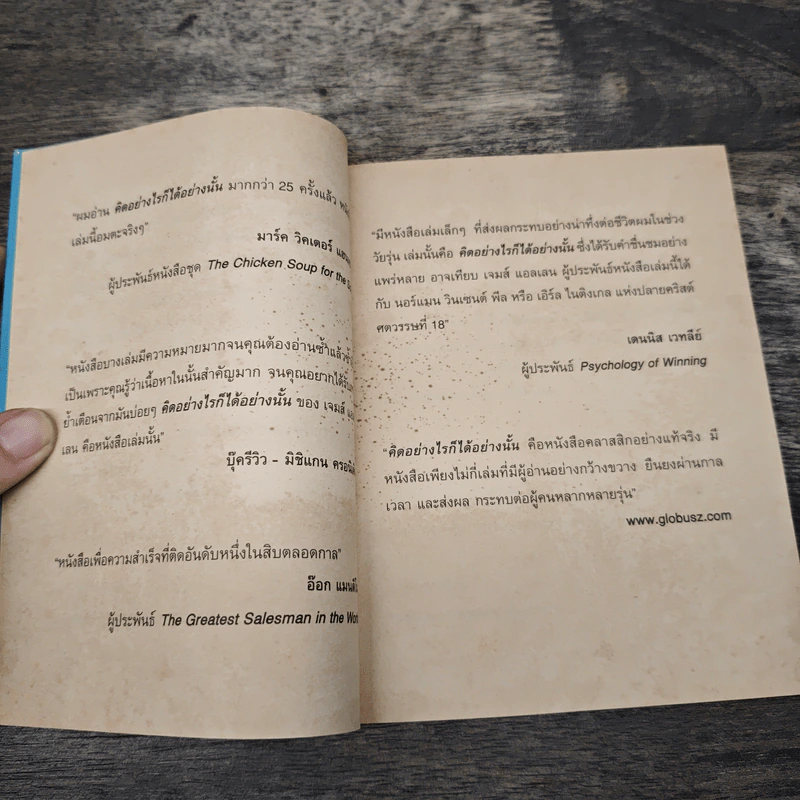 "ผมอ่าน คิดอย่างไรก็ได้อย่างนั้น มากกว่า 25 ครั้งแล้ว
เล่มนี้อมตะจริงๆ"
มาร์ค วิคเตอร์
ผู้ประพันธ์หนังสือชุด The Chicken Soup for the
"หนังสือบางเล่มมีความหมายมากจนคุณต้องอ่านซ้ำแล้ว
เป็นเพราะคุณรู้ว่าเนื้อหาในนั้นสำคัญมาก จนคุณอยากได้
ย้ำเตือนจากมันบ่อยๆ คิดอย่างไรก็ได้อย่างนั้น ของ เจมส์
เลน คือหนังสือเล่มนั้น"
บุ๊ครีวิว - มิชิแกน
"หนังสือเพื่อความสำเร็จที่ติดอันดับหนึ่งในสิบตลอดกาล"
อ๊อก
ผู้ประพันธ์ The Greatest Salesman in the
"มีหนังสือเล่มเล็กๆ ที่ส่งผลกระทบอย่างน่าทึ่งต่อชีวิตผมในช่วง
วัยรุ่น เล่มนั้นคือ คิดอย่างไรก็ได้อย่างนั้น ซึ่งได้รับคำชื่นชมอย่าง
แพร่หลาย อาจเทียบ เจมส์ แอลเลน ผู้ประพันธ์หนังสือเล่มนี้ได้
กับ นอร์แมน วินเซนต์ พีล หรือ เอิร์ล ไนติงเกล แห่งปลายคริสต์
ศตวรรษที่ 18"
เดนนิส เวทลีย์
ผู้ประพันธ์ Psychology of Winning
"คิดอย่างไรก็ได้อย่างนั้น คือหนังสือคลาสสิกอย่างแท้จริง มี
หนังสือเพียงไม่กี่เล่มที่มีผู้อ่านอย่างกว้างขวาง ยืนยงผ่านกาล
เวลา และส่งผล กระทบต่อผู้คนหลากหลายรุ่น"
www.globusz.com